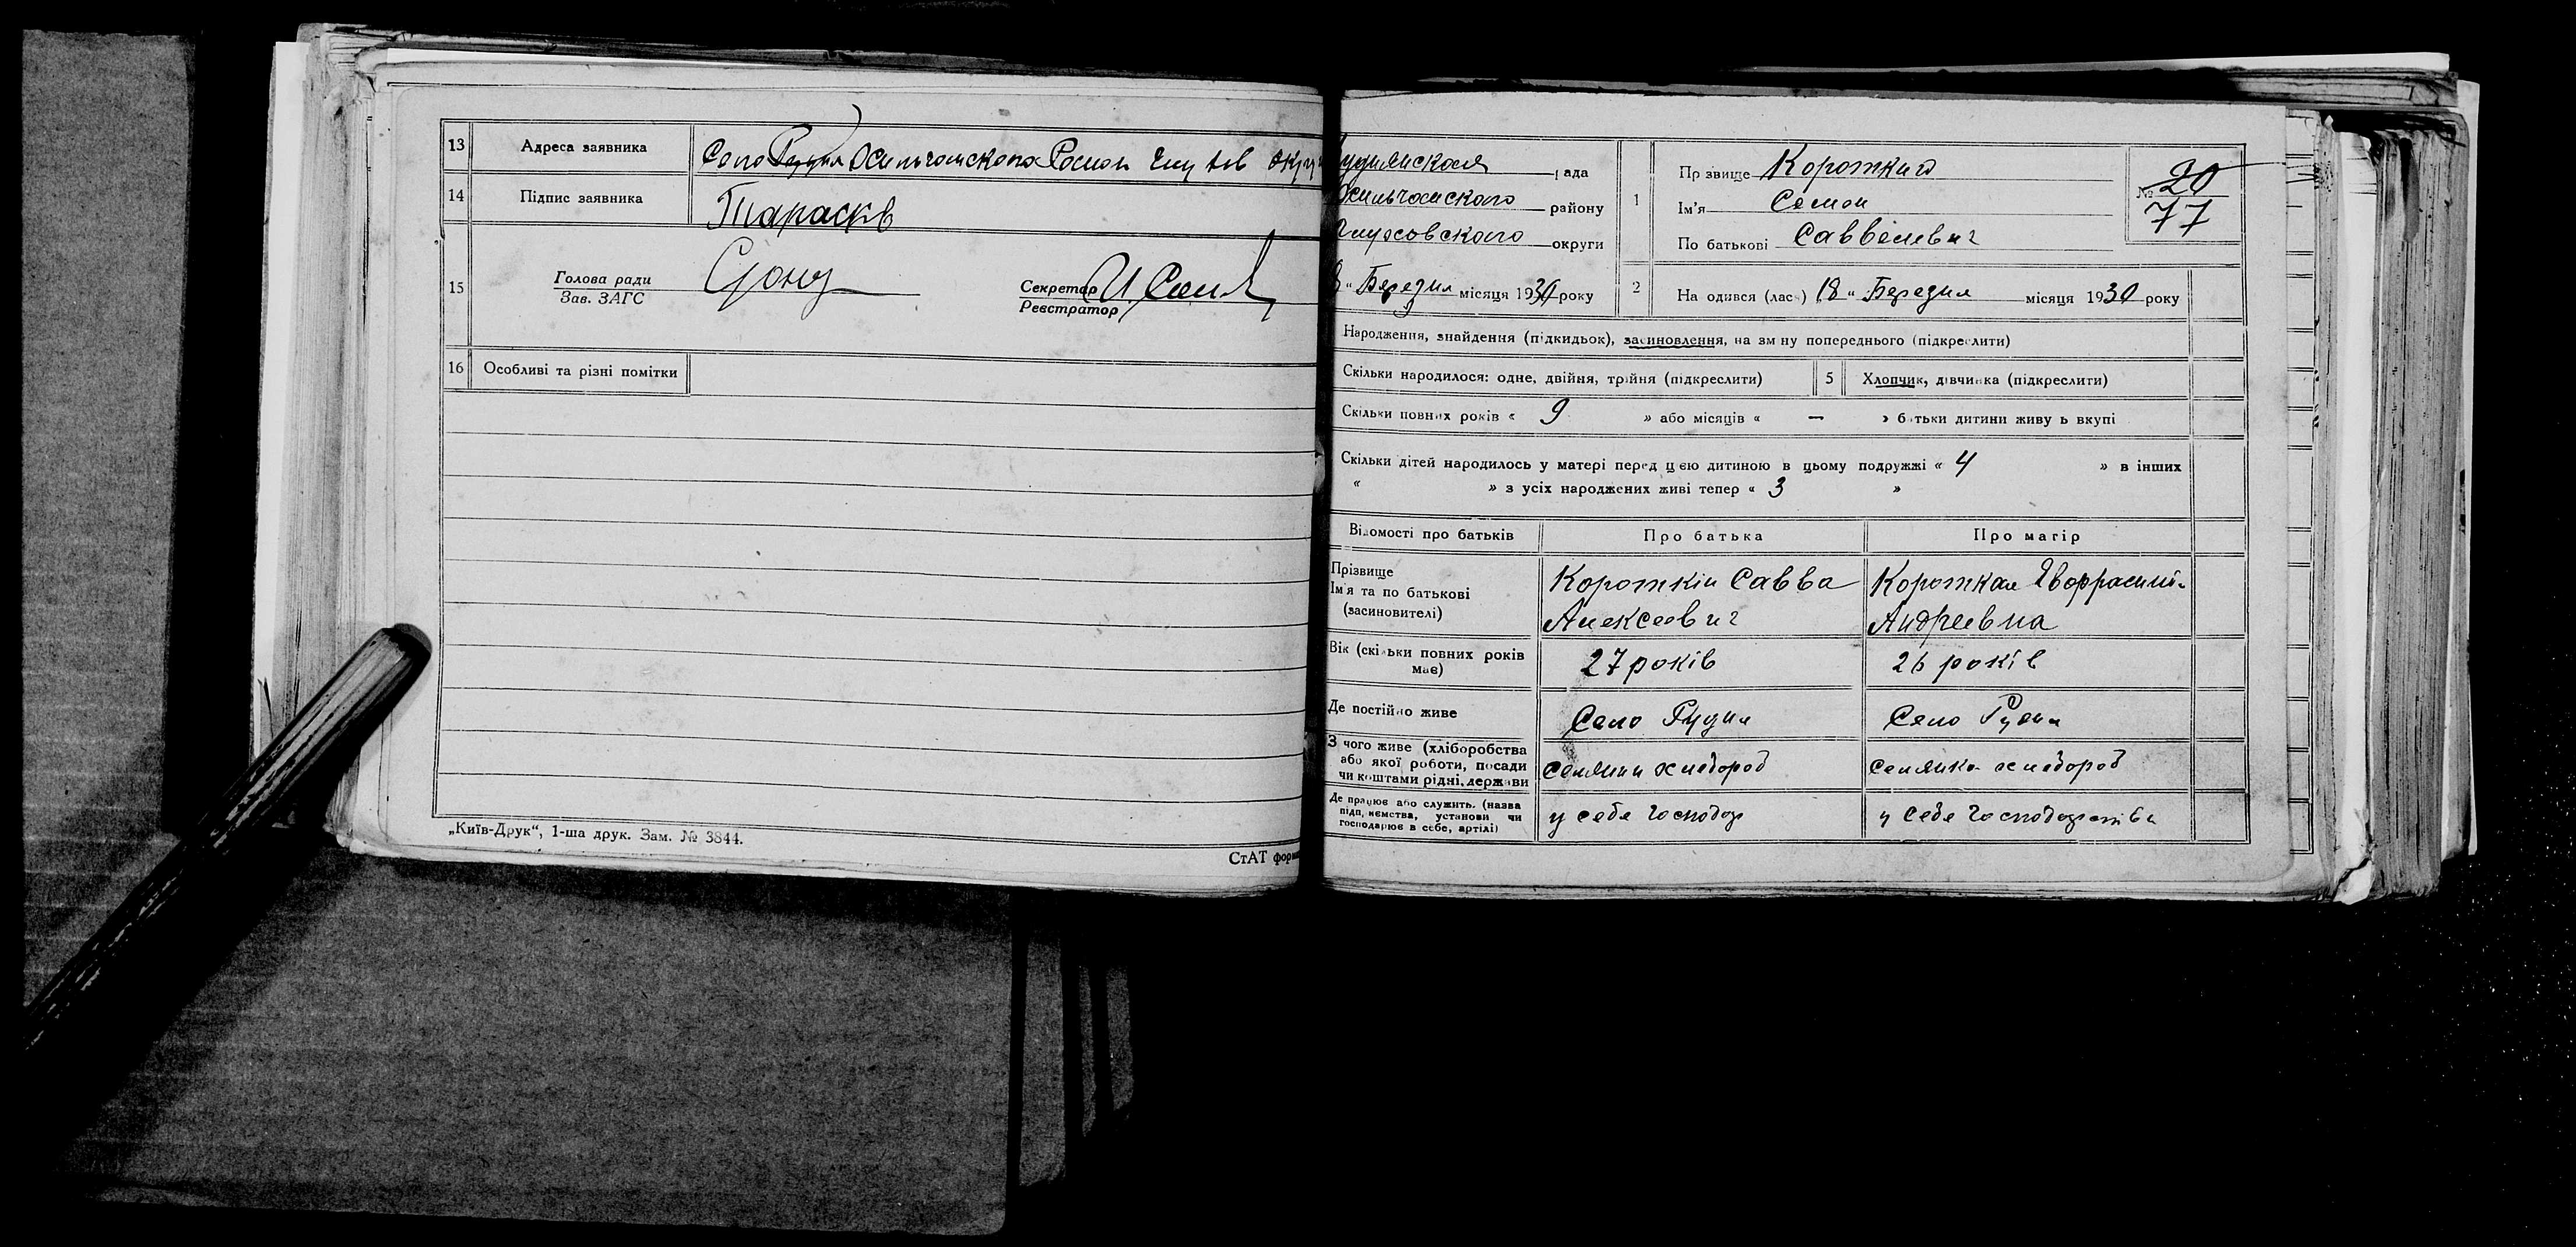 13 Адреса заявника Село Рудня
14 Підпис заявника Тарасків
15 Голова ради Секретар
Зав. ЗАГС Реєстратор
16 Особливі та різні помітки
„Київ-Друк“, 1-ша друк. Зам. № 3844.
СтАТ форма
рада
району
округи
" Березня місяця 1930 року
1 Прізвище Короткий
Ім'я Семен
По батькові Саввелевич
№ 20
77
2 На одився (лась) 18 " Березня місяця 1930 року
Народження, знайдення (підкидьок), засиновлення, на зміну попереднього (підкреслити)
Скільки народилося: одне, двійня, трійня (підкреслити) 5 Хлопчик, дівчинка (підкреслити)
Скільки повних років « 9 » або місяців « — » батьки дитини живуть вкупі
Скільки дітей народилось у матері перед цією дитиною в цьому подружжі « 4 » в інших
« » з усіх народжених живі тепер « 3 »
Відомості про батьків Про батька Про матір
Прізвище
Ім'я та по батькові
(засиновителі)
Короткій Савва
Алексеевич
Короткая
Андреевна
Вік (скільки повних років
має) 27 років 26 років
Де постійно живе Село Рудня Село Рудня
З чого живе (хліборобства
або якої роботи, посади
чи коштами рідні, держави
селянин хлебороб селянка хлебороб
Де працює або служить. (назва
підприємства, установи чи
господарює в себе, артілі)
у себе господар у себе